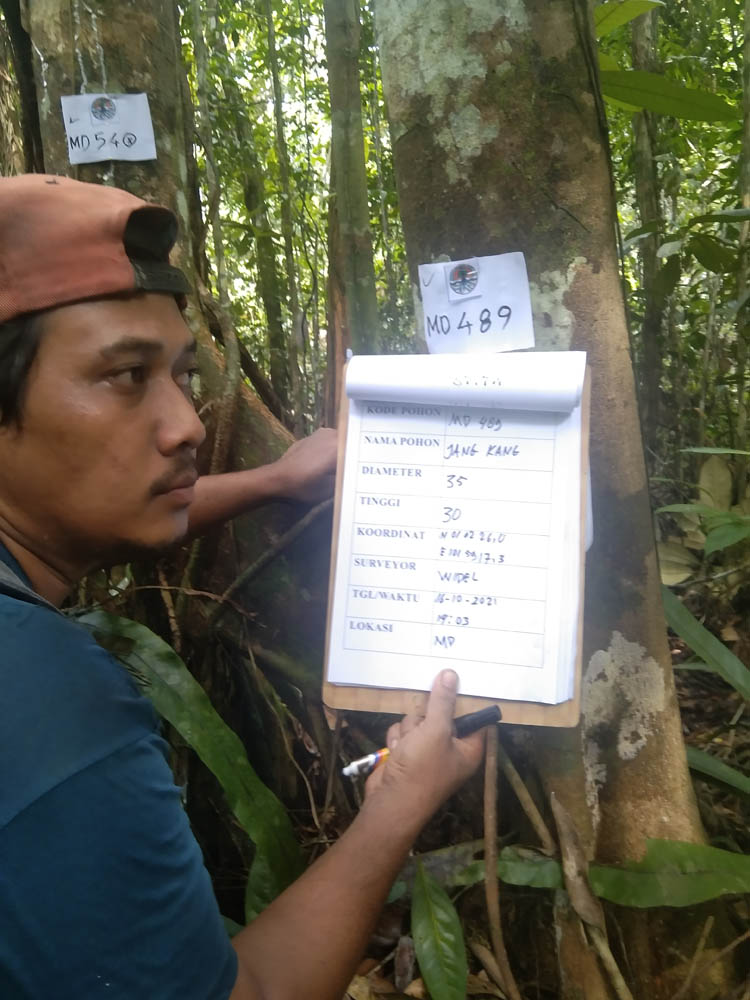 MD 540
MD 489
KODE POHON MD 489
NAMA POHON JANG KANG
DIAMETER 35
TINGGI 30
KOORDINAT N 01 02 26,0
E 101 59 17,3
SURVEYOR WIDEL
TGL/WAKTU 16-10-2021
14:03
LOKASI MD